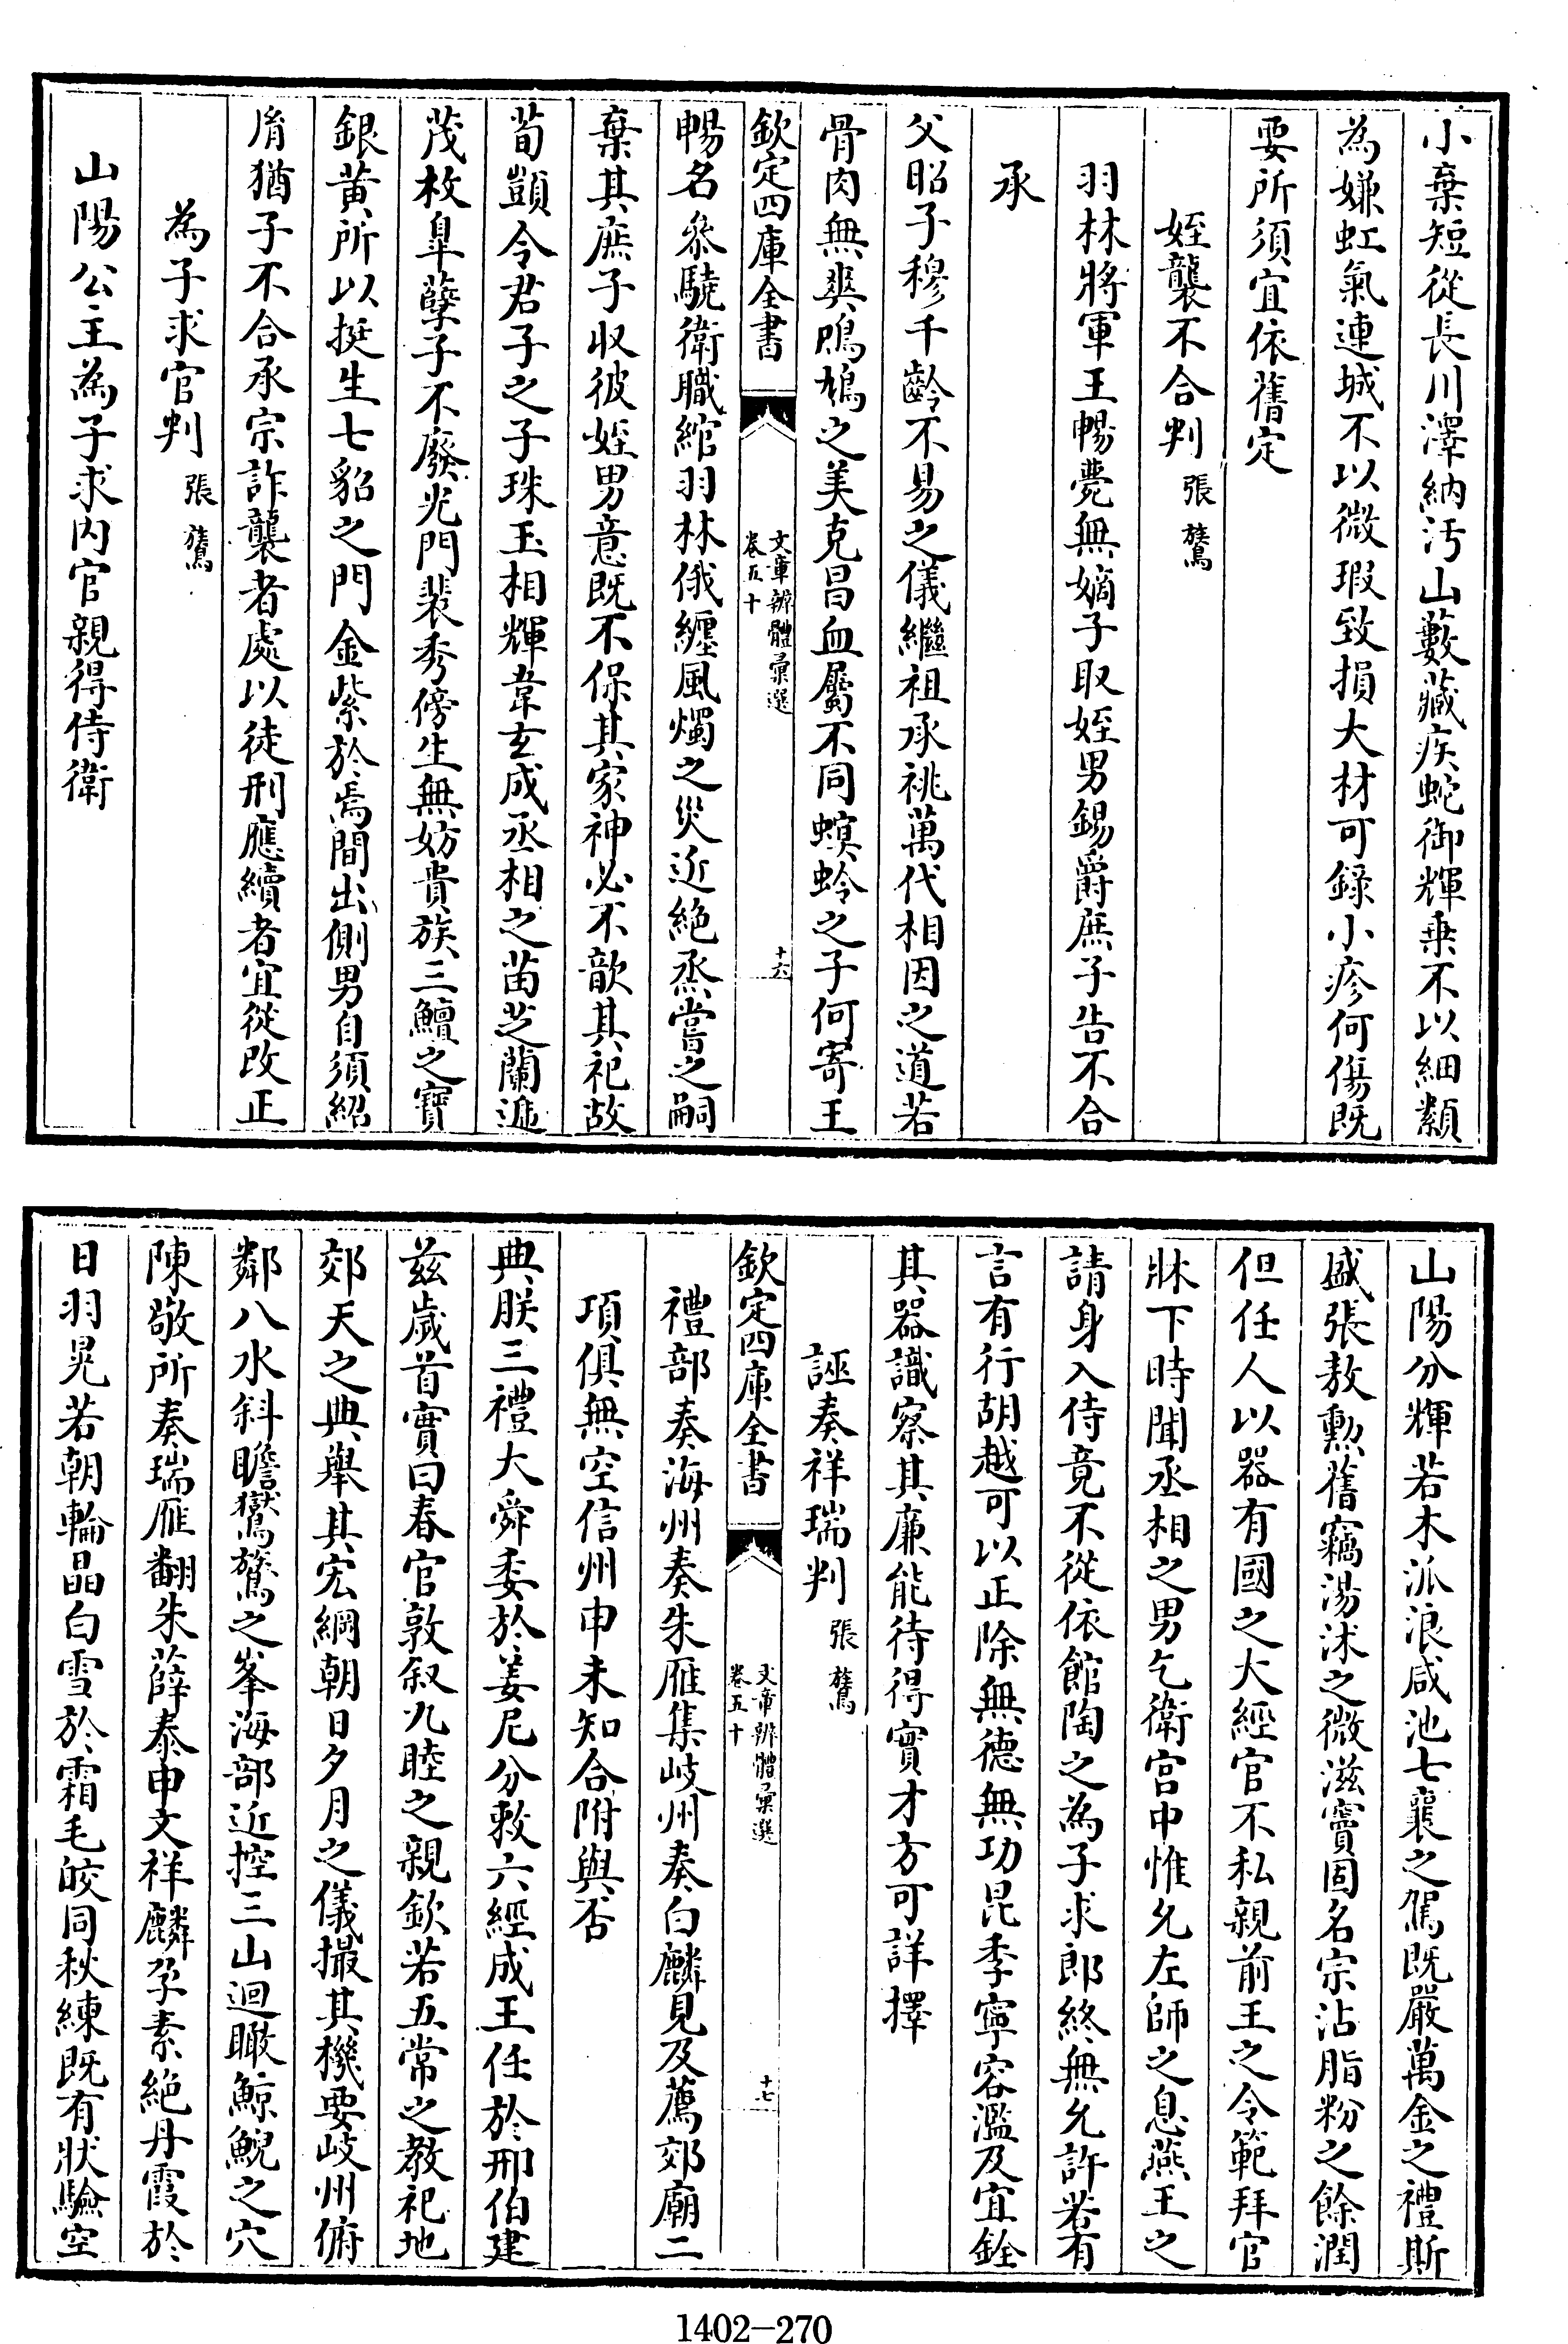 小棄短從長川澤納汚山藪藏疾蛇御輝乗不以細纇
為嫌虹氣連城不以微瑕致損大材可錄小疹何傷既
要所須宜依舊定
姪襲不合判 張鷟
羽林將軍王暢薨無嫡子取姪男錫爵庶子告不合
承
父昭子穆千齡不易之儀繼祖承祧萬代相因之道若
骨肉無爽鳲鳩之美克昌血屬不同螟蛉之子何寄王
欽定四庫全書 文章辨體彙選 卷五十 十六
暢名參驍衛職綰羽林俄纏風燭之災近絶烝嘗之嗣
棄其庶子收彼姪男意既不保其家神必不歆其祀故
荀顗令君子之子珠玉相輝韋玄成丞相之苗芝蘭逓
茂枚臯孽子不廢光門裴秀傍生無妨貴族三鱣之寳
銀黄所以挺生七貂之門金紫於焉間出側男自須紹
胤猶子不合承宗詐襲者處以徒刑應續者宜從改正
為子求官判 張鷟
山陽公主為子求内官親得侍衛
山陽分輝若木派浪咸池七襄之駕既嚴萬金之禮斯
盛張敖勲舊竊湯沐之微滋竇固名宗沾脂粉之餘潤
但任人以器有國之大經官不私親前王之令範拜官
牀下時聞丞相之男乞衛宫中惟允左師之息燕王之
請身入侍竟不從依館陶之為子求郎終無允許若有
言有行胡越可以正除無德無功昆季寧容濫及宜銓
其器識察其廉能待得實才方可詳擇
誣奏祥瑞判 張鷟
欽定四庫全書 文章辨體彙選 卷五十 十七
禮部奏海州奏朱雁集岐州奏白麟見及薦郊廟二
項俱無空信州申未知合附與否
典朕三禮大舜委於姜尼分敕六經成王任於邢伯建
兹歲首實曰春官敦叙九睦之親欽若五常之教祀地
郊天之典舉其宏綱朝日夕月之儀撮其機要岐州俯
鄰八水斜瞻鸑鷟之峯海部近控三山迴瞰鯨鯢之穴
陳敬所奏瑞雁翻朱薛泰申文祥麟孕素絶丹霞於
日羽晃若朝輪晶白雪於霜毛皎同秋練既有狀驗空
1402-270